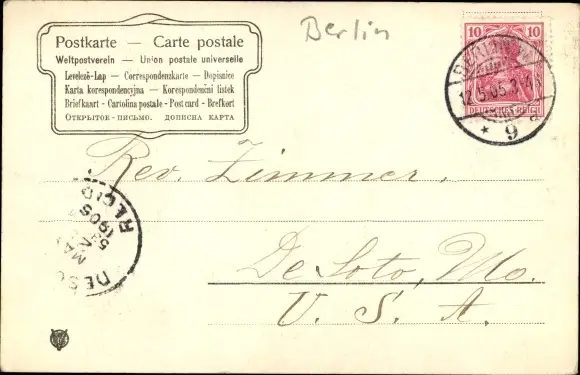 Berlin
Postkarte — Carte postale
Weltpostverein — Union postale universelle
Levelező-Lap — Correspondenzkarte — Dopisnice
Karta korespondencyjna — Korespondenční listek
Briefkaart - Cartolina postale - Post card - Brefkort
Открытое - письмо. дописна карта
10 10
BERLIN W
12.5.05.
DEUTSCHES REICH
* 9
Rev. Zimmer.
De Soto, Mo.
U. S. A.
DESO
REC'D
1905